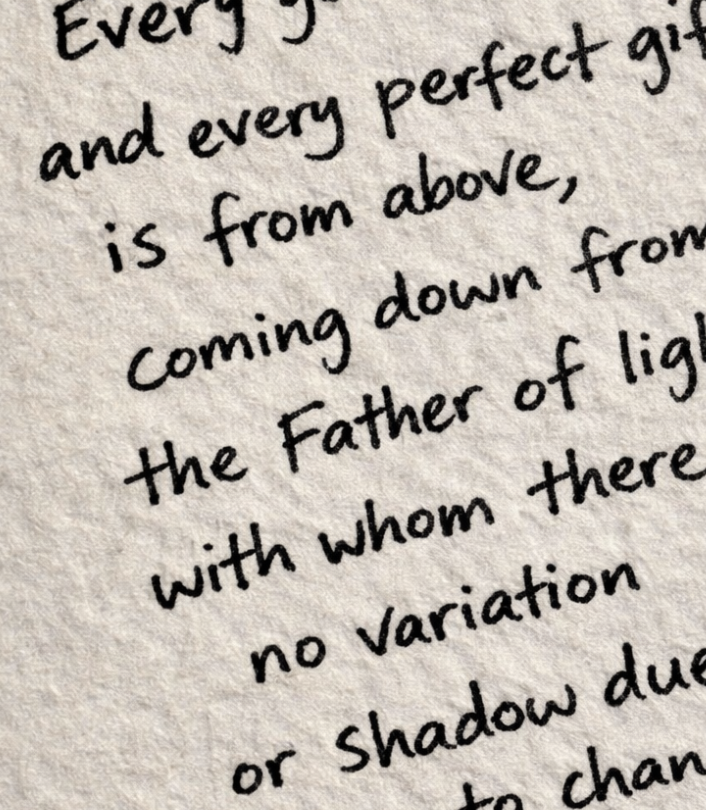 Every
and every perfect
is from above,
coming down from
the Father of
with whom there
no variation
or shadow due
to